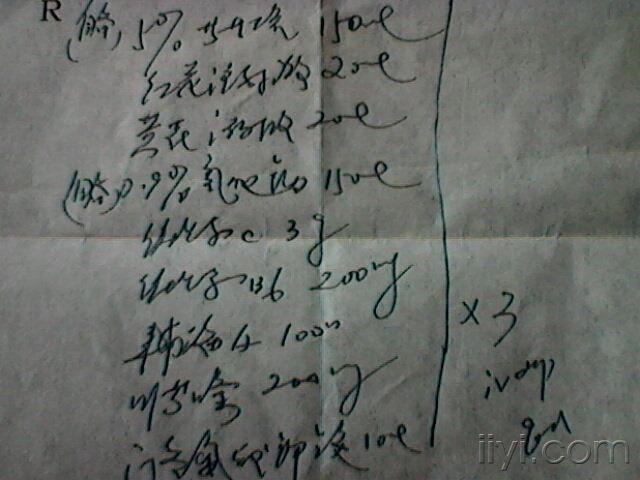 R
(自备) 5% 葡萄糖 150ml
红花注射液 20ml
黄芪注射液 20ml
(自备) 0.9% 氯化钠 150ml
维生素C 3g
维生素B6 200mg
辅酶A 100u
川芎嗪 200mg
门冬氨酸钾镁 10ml
×3
ivdrip
qd
iiyi.com